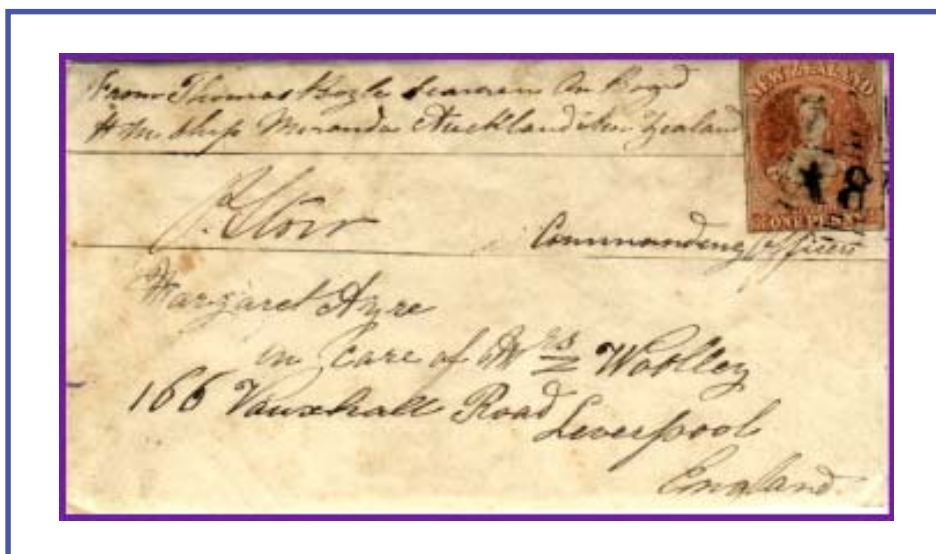 From Thomas Boyle Seaman On Board
H M Ship Miranda Auckland New Zealand
NEW ZEALAND
ONE PENNY
Commanding Officer
Margaret Ayre
in Care of Mrs Woolley
166 Vauxhall Road
Liverpool
England